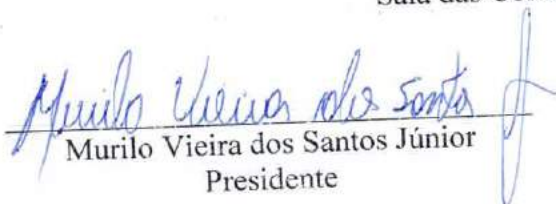 Sala das
Murilo Vieira dos Santos J
Murilo Vieira dos Santos Júnior
Presidente